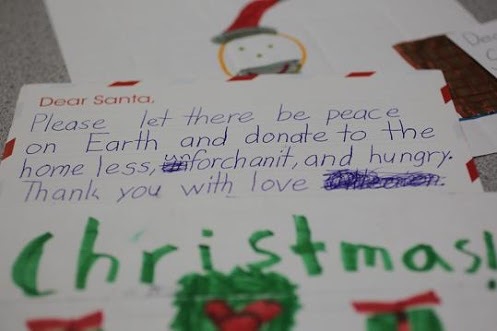 Dear Santa,
Please let there be peace
on Earth and donate to the
home less, unforchanit, and hungry.
Thank you with love
Christmas!